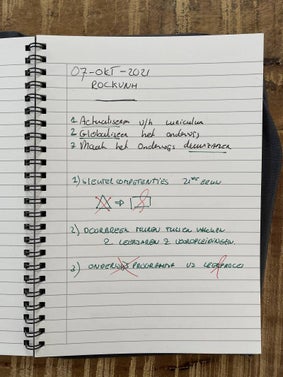 07-OKT-2021
ROCKUNH
1 Actualiseer v/h curriculum
2 Globaliseer het onderwijs
3 Maak het onderwijs duurzamer
1) SLEUTELCOMPETENTIES 21STE EEUW
2) DOORBREEK MUREN TUSSEN VAKKEN
2 LEERJAREN 3 VOOROPLEIDINGEN
3) ONDERWIJSPROGRAMMA VS LEERPROCES